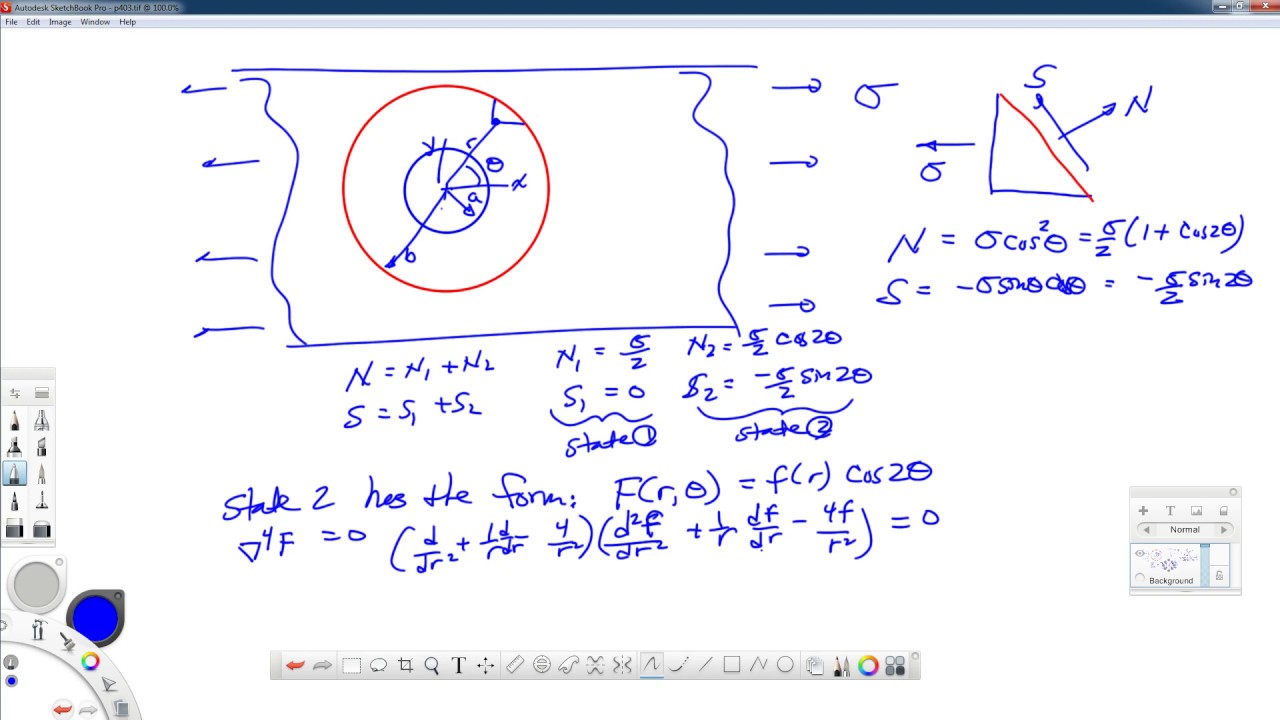 Autodesk SketchBook Pro - p403.tif @ 100.0%
File Edit Image Window Help
σ
S
N
y r θ x
σ
a
b
N = σcos²θ = σ/2 (1 + cos2θ)
S = -σsinθcosθ = -σ/2 sin2θ
N = N₁ + N₂
N₁ = σ/2
N₂ = σ/2 cos2θ
S = S₁ + S₂
S₁ = 0
S₂ = -σ/2 sin2θ
state ①
state ②
state 2 has the form: F(r,θ) = f(r) cos2θ
∇⁴F = 0 (d/dr² + 1/r d/dr - 4/r²)(d²f/dr² + 1/r df/dr - 4f/r²) = 0
Normal
Background
T